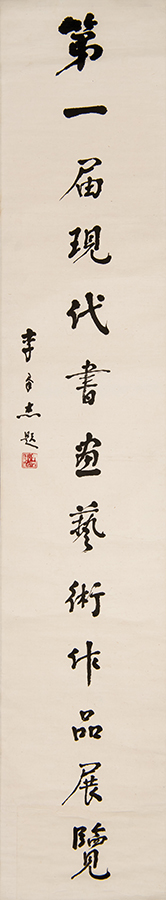 第一届現代書畫藝術作品展覽
李奇杰題